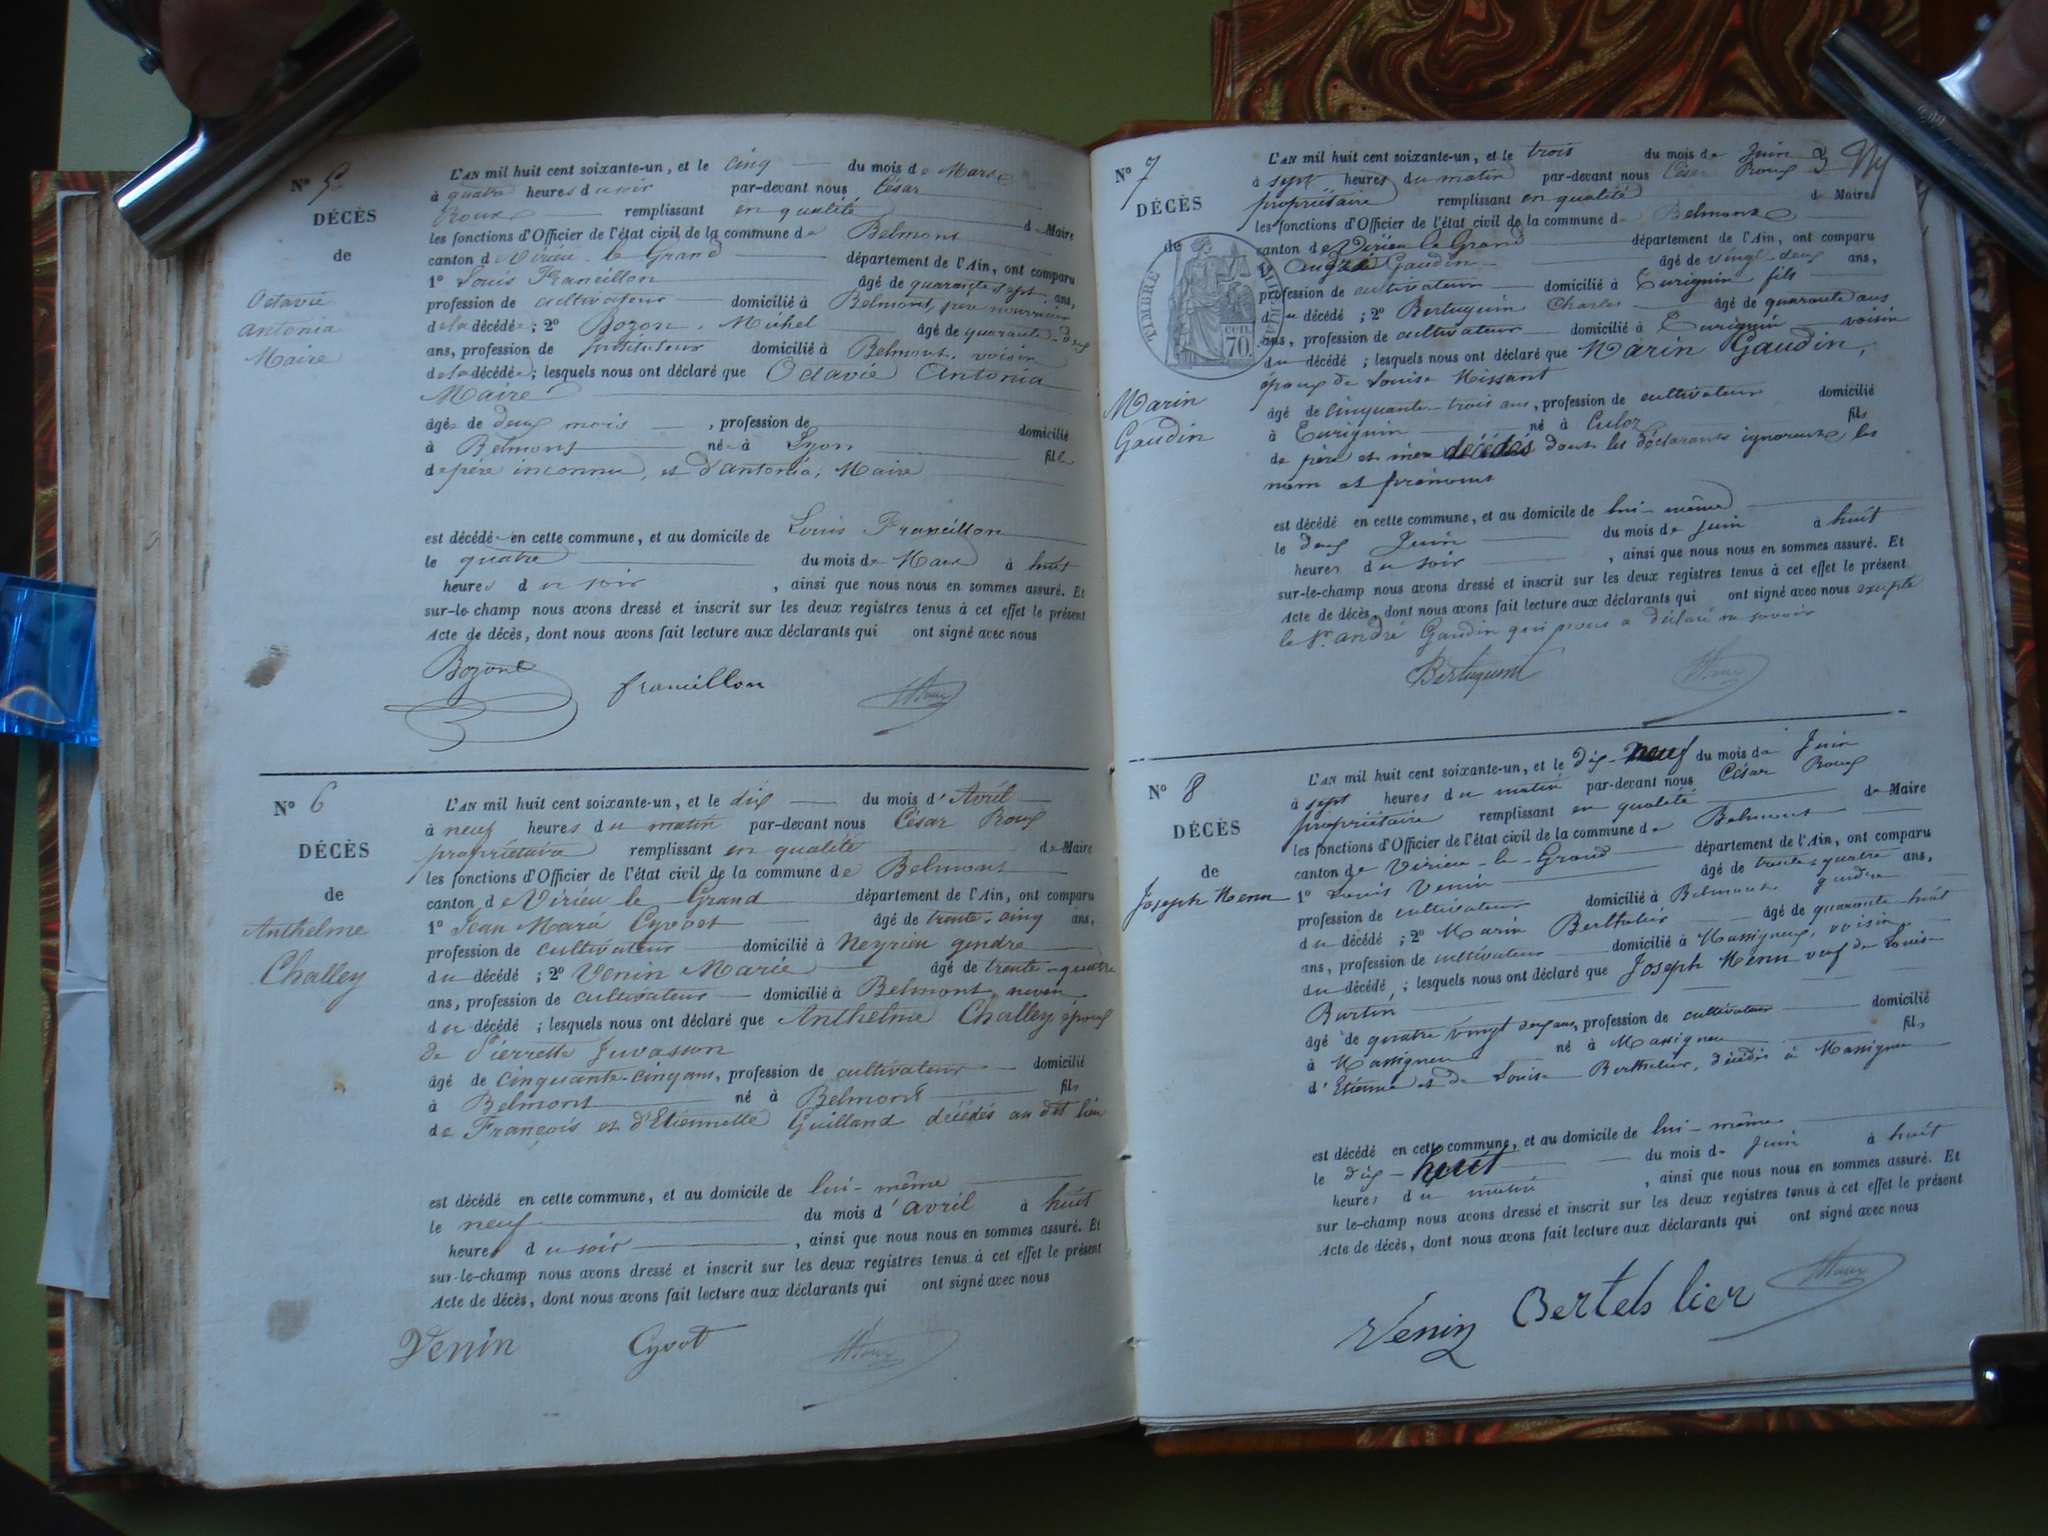 N° 5
DÉCÈS
de
Octavie
Antonia
Maire
L'AN mil huit cent soixante-un, et le cinq du mois de Mars
à quatre heures du soir par-devant nous César
Roux remplissant en qualité de Maire
les fonctions d'Officier de l'état civil de la commune de Belmont
canton d Virieu-le Grand département de l'Ain, ont comparu
1° Louis Francillon âgé de quarante sept ans,
profession de cultivateur domicilié à Belmont, père nourricier
de la décédée; 2° Bozon, Michel âgé de quarante-deux
ans, profession de Instituteur domicilié à Belmont, voisin
de la décédée; lesquels nous ont déclaré que Octavie Antonia
Maire
âgée de deux mois, profession de domicilié
à Belmont née à Lyon fille
de père inconnu, et d'Antonia, Maire
est décédée en cette commune, et au domicile de Louis Francillon
le quatre du mois de Mars à huit
heures du soir, ainsi que nous nous en sommes assuré. Et
sur-le-champ nous avons dressé et inscrit sur les deux registres tenus à cet effet le présent
Acte de décès, dont nous avons fait lecture aux déclarants qui ont signé avec nous
Bozon francillon Roux
N° 6
DÉCÈS
de
Anthelme
Challey
L'AN mil huit cent soixante-un, et le dix du mois d'Avril
à neuf heures du matin par-devant nous César Roux
propriétaire remplissant en qualité de Maire
les fonctions d'Officier de l'état civil de la commune de Belmont
canton de Virieu le Grand département de l'Ain, ont comparu
1° Jean Marie Cyvoct âgé de trente-cinq ans,
profession de cultivateur domicilié à Neyrieu gendre
du décédé; 2° Venin Marie âgé de trente-quatre
ans, profession de cultivateur domicilié à Belmont neveu
du décédé; lesquels nous ont déclaré que Anthelme Challey époux
de Pierrette Juvasson
âgé de cinquante-cinq ans, profession de cultivateur domicilié
à Belmont né à Belmont fils
de François et d'Etiennette Guilland décédés au dit lieu
est décédé en cette commune, et au domicile de lui-même
le neuf du mois d'avril à huit
heures du soir, ainsi que nous nous en sommes assuré. Et
sur-le-champ nous avons dressé et inscrit sur les deux registres tenus à cet effet le présent
Acte de décès, dont nous avons fait lecture aux déclarants qui ont signé avec nous
Venin Cyvoct Roux
N° 7
DÉCÈS
de
TIMBRE IMPÉRIAL
CEN
70.
Marin
Gaudin
L'AN mil huit cent soixante-un, et le trois du mois de Juin 3
à sept heures du matin par-devant nous César Roux
propriétaire remplissant en qualité de Maire
les fonctions d'Officier de l'état civil de la commune de Belmont
canton de Virieu le Grand département de l'Ain, ont comparu
1° André Gaudin âgé de vingt-deux ans,
profession de cultivateur domicilié à Euriguin fils
du décédé; 2° Bertuquin Charles âgé de quarante ans
ans, profession de cultivateur domicilié à Euriguin voisin
du décédé; lesquels nous ont déclaré que Marin Gaudin,
époux de Louise Missant
âgé de cinquante-trois ans, profession de cultivateur domicilié
à Euriguin né à Culoz fils
de père et mère décédés dont les déclarants ignorent les
nom et prénoms
est décédé en cette commune, et au domicile de lui-même
le deux Juin du mois de Juin à huit
heures du soir, ainsi que nous nous en sommes assuré. Et
sur-le-champ nous avons dressé et inscrit sur les deux registres tenus à cet effet le présent
Acte de décès, dont nous avons fait lecture aux déclarants qui ont signé avec nous excepté
le Sr. André Gaudin qui nous a déclaré ne savoir
Bertuquin Roux
N° 8
DÉCÈS
de
Joseph Henn
L'AN mil huit cent soixante-un, et le dix-neuf du mois de Juin
à sept heures du matin par-devant nous César Roux
propriétaire remplissant en qualité de Maire
les fonctions d'Officier de l'état civil de la commune de Belmont
canton de Virieu-le-Grand département de l'Ain, ont comparu
1° Louis Venin âgé de trente-quatre ans,
profession de cultivateur domicilié à Belmont gendre
du décédé; 2° Marin Berthelier âgé de quarante-huit
ans, profession de cultivateur domicilié à Massigneu, voisin
du décédé; lesquels nous ont déclaré que Joseph Henn veuf de Louise
Burtin
âgé de quatre vingt deux ans, profession de cultivateur domicilié
à Massigneu né à Massigneu fils
d'Etienne et de Louise Berthelier, décédés à Massigneu
est décédé en cette commune, et au domicile de lui-même
le dix-huit du mois de Juin à huit
heures du matin, ainsi que nous nous en sommes assuré. Et
sur-le-champ nous avons dressé et inscrit sur les deux registres tenus à cet effet le présent
Acte de décès, dont nous avons fait lecture aux déclarants qui ont signé avec nous
Venin Bertelslier Roux